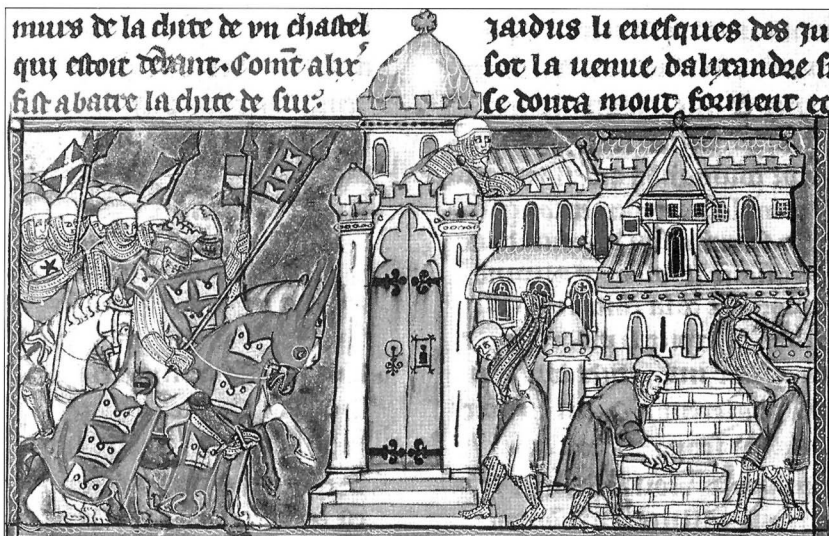 murs de la chite de vn chastel
qui estoit deuant. Coment alix
fist abatre la chite de sur.
Jaidus li euesques des Ju
sot la uenue dalixandre si
se douta mout forment et